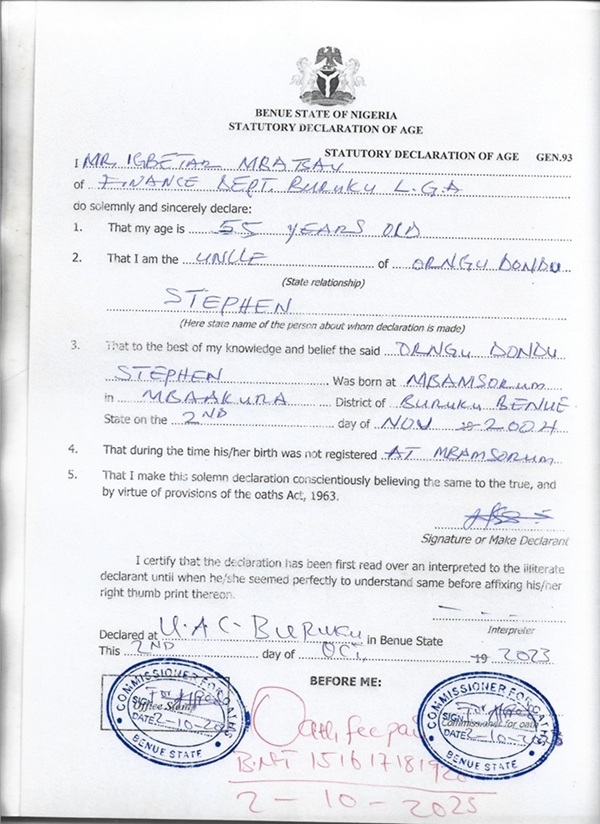 BENUE STATE OF NIGERIA
STATUTORY DECLARATION OF AGE
STATUTORY DECLARATION OF AGE GEN.93
I MR. IGBETAR MBATSAV
of FINANCE DEPT. BURUKU L.G.A
do solemnly and sincerely declare:
1. That my age is 55 YEARS OLD
2. That I am the UNCLE of ORNGU DONDU
(State relationship)
STEPHEN
(Here state name of the person about whom declaration is made)
3. That to the best of my knowledge and belief the said ORNGU DONDU
STEPHEN Was born at MBAMSORUM
in MBAAKURA District of BURUKU BENUE
State on the 2ND day of NOV 2004
4. That during the time his/her birth was not registered AT MBAMSORUM
5. That I make this solemn declaration conscientiously believing the same to the true, and
by virtue of provisions of the oaths Act, 1963.
Signature or Make Declarant
I certify that the declaration has been first read over an interpreted to the illiterate
declarant until when he/she seemed perfectly to understand same before affixing his/her
right thumb print thereon.
Interpreter
Declared at U.A.C-BURUKU in Benue State
This 2ND day of OCT, 19 2023
BEFORE ME:
COMMISSIONER FOR OATHS
Office Stamp
SIGN
DATE 2-10-20
BENUE STATE
Oath fee paid
B.NT 15161718192
2-10-2023
COMMISSIONER FOR OATHS
SIGN
Commissioner for oath
DATE 2-10-20
BENUE STATE